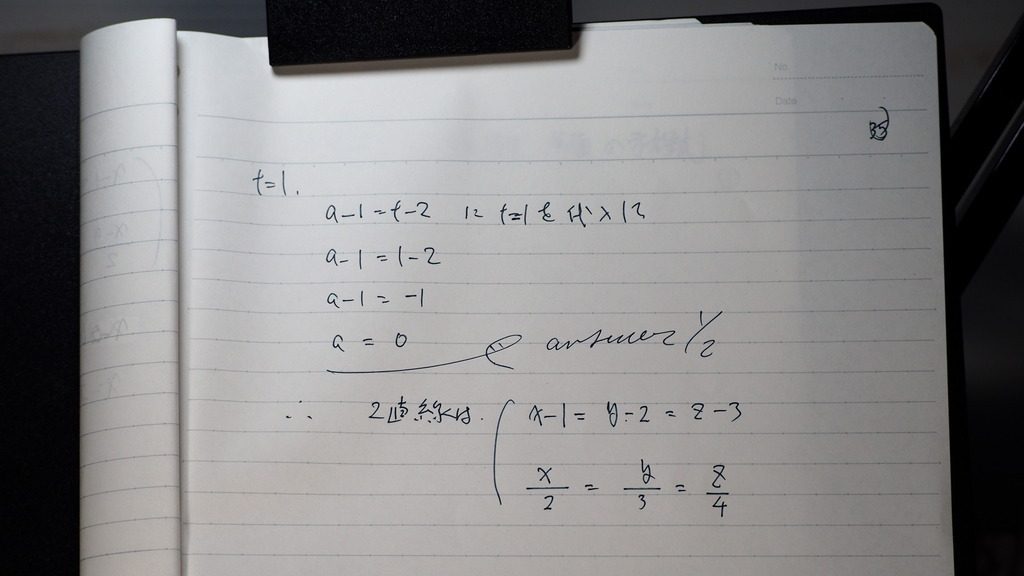 No.
Date
t=1.
a-1=t-2 に t=1を代入して
a-1=1-2
a-1=-1
a=0 answer 1/2
∴ 2直線は. x-1=y-2=z-3
x/2=y/3=z/4